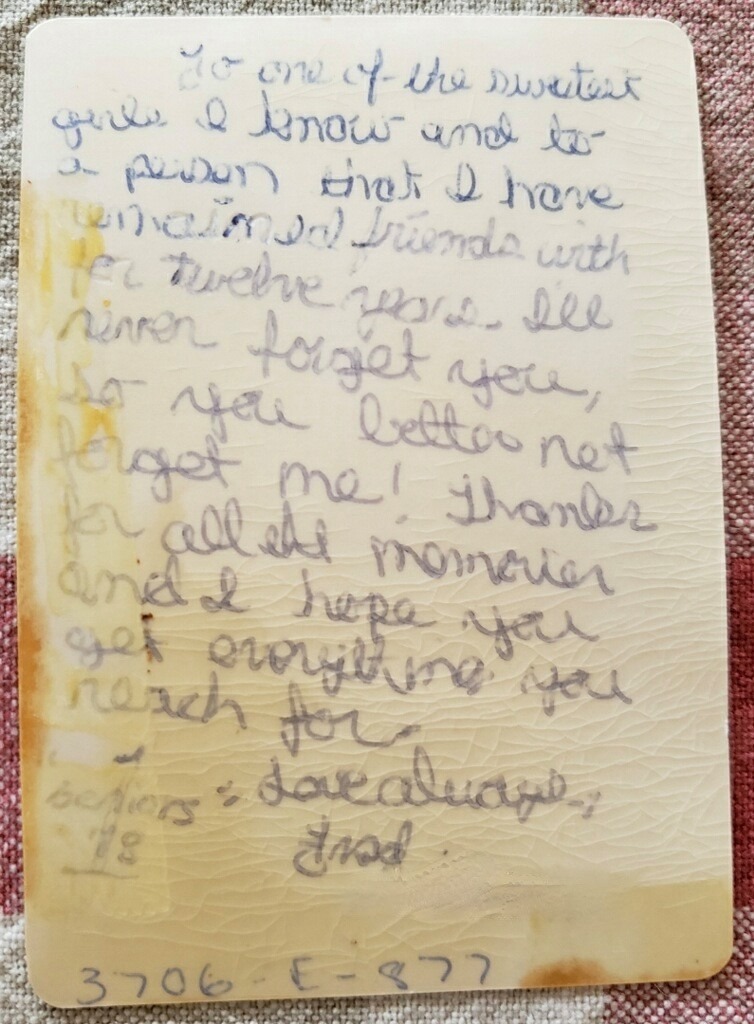 To one of the sweetest
girls I know and to
a person that I have
remained friends with
for twelve years. I'll
never forget you,
so you better not
forget me! Thanks
for all the memories
and I hope you
get everything you
reach for.
Love always,
seniors
78 Fred
3706-E-877